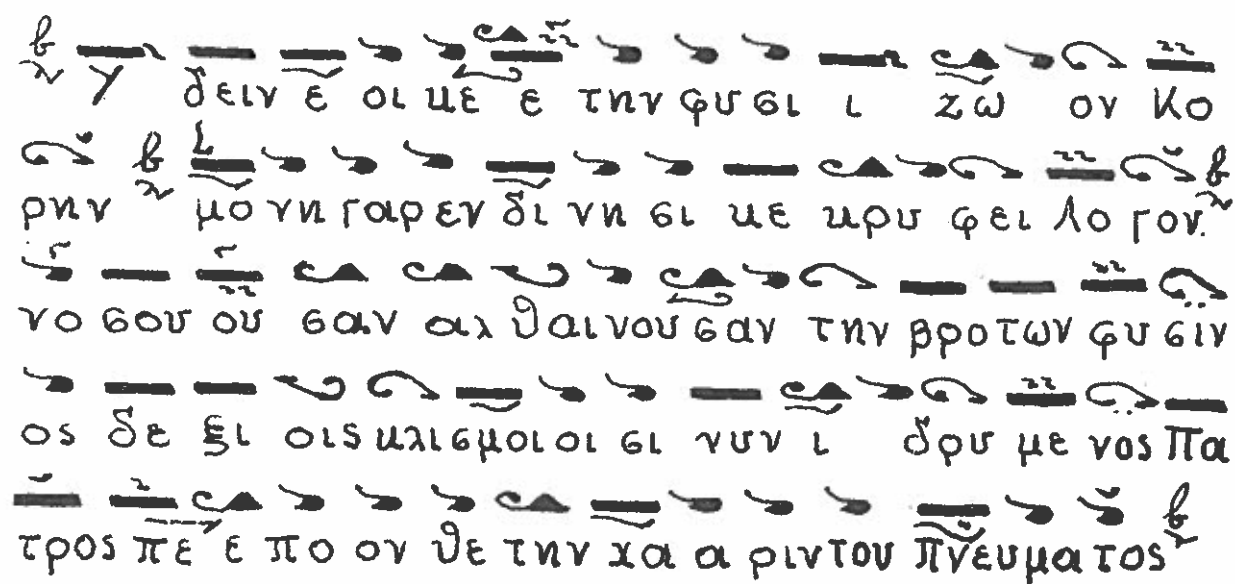 Υ δειν ε οι κε ε την φυ σι ι ζω ον Κο
ρην μο νη γαρ εν δι νη σι κε κρυ φει λο γον.
νο σου ου σαν αλ θαι νου σαν την βρο των φυ σιν
ος δε ξι οις κλισ μοι οι σι νυν ι δρυ με νος Πα
τρος πε ε πο ον θε την χα α ριν του πνευ μα τος